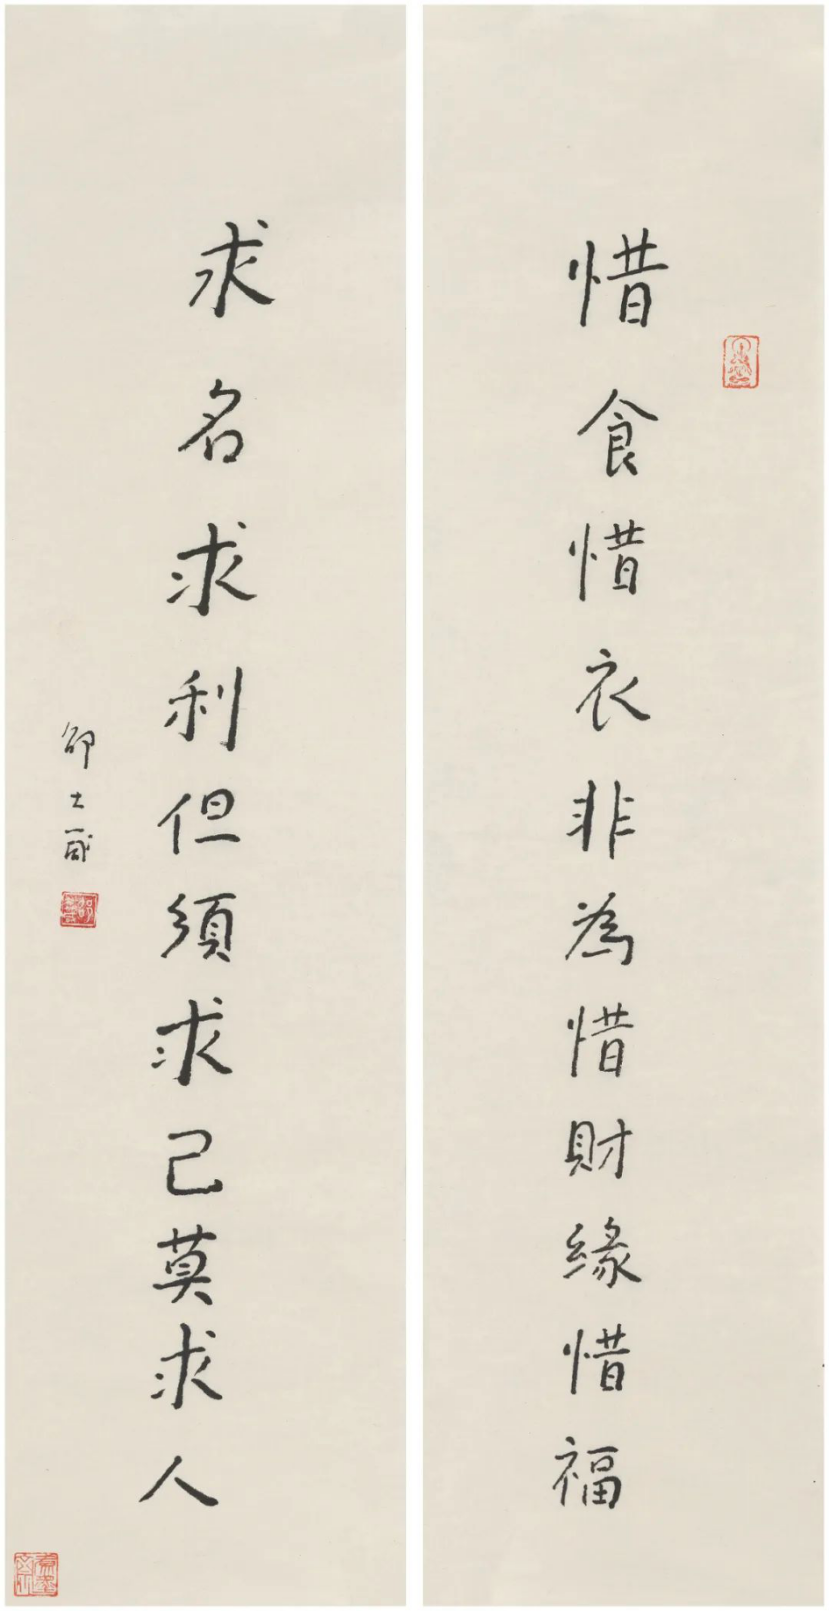 惜食惜衣非為惜財緣惜福
求名求利但須求己莫求人